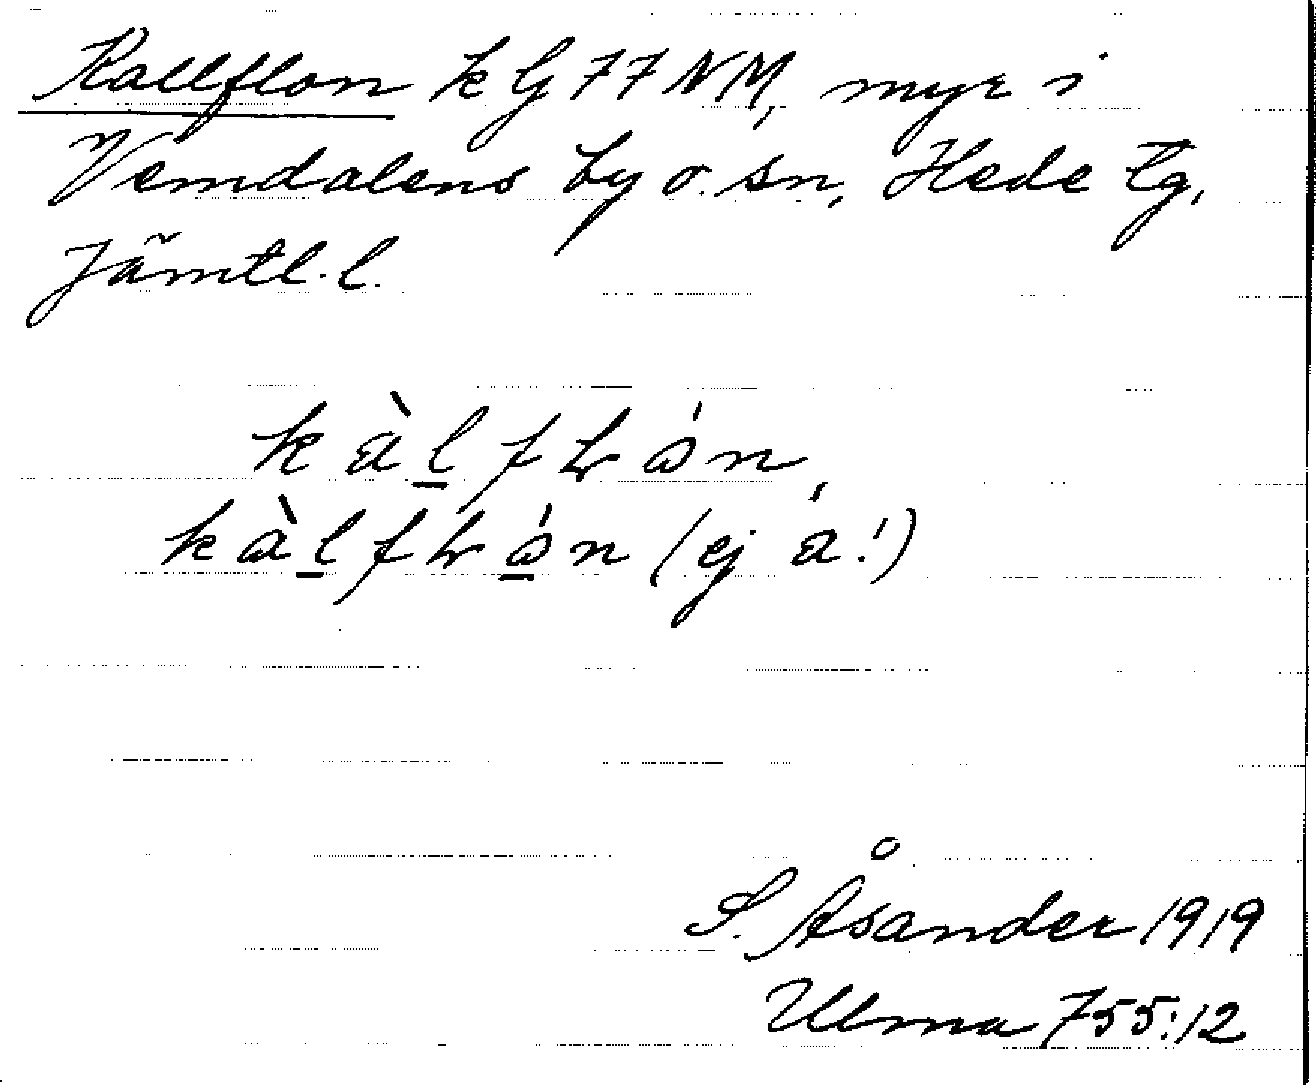 Kallflon k G 77 NM, myr i
Vemdalens by o. sn, Hede tg,
Jämtl. l.
kàl̲fʟón,
kàl̲fʟó̲n (ej á!)
S. Åsander 1919
Ulma 755:12